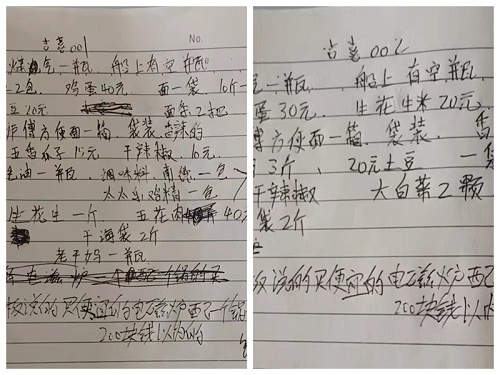 吉喜001
No.
煤气一瓶 船上有空瓶
2包. 鸡蛋40元 面一袋 10斤一
豆20元 面条2把
师傅方便面一箱. 袋装 香辣的
五香瓜子15元 干辣椒. 10元.
油一瓶. 调味料 一包
太太乐鸡精一包
生花生一斤 五花肉 40
干海带2斤
老干妈一瓶
板说的买便宜的电磁炉配一个锅
200块钱以内的
吉喜002
气一瓶. 船上有空瓶.
蛋30元. 生花生米20元.
傅方便面一箱. 袋装. 香
3斤. 20元土豆 一
干辣椒 大白菜2颗
袋2斤
板说的买便宜的电磁炉配
200块钱以内